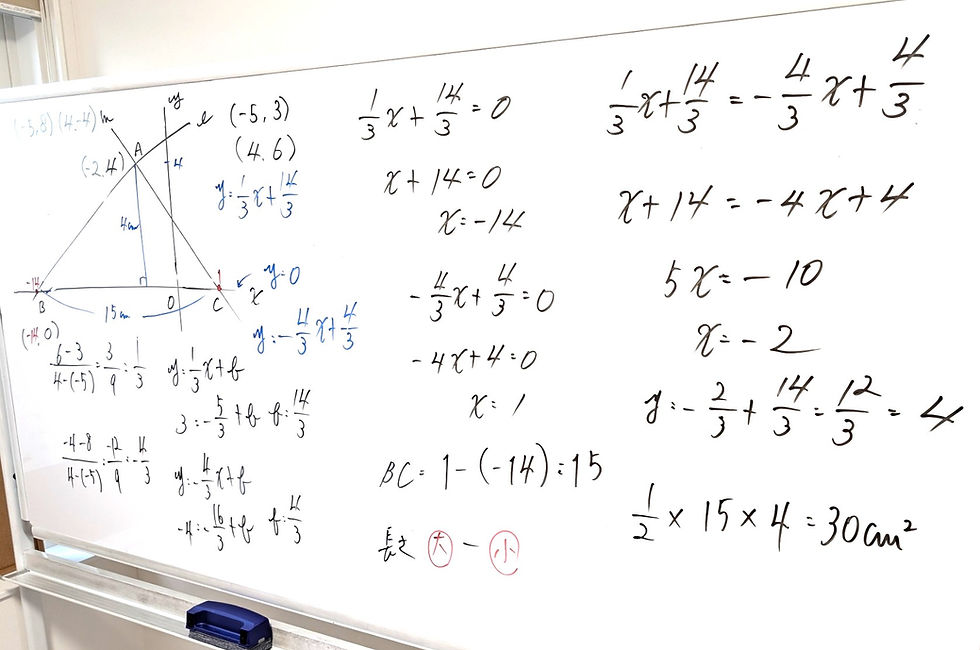 (-5,8) (4,-4) m
y
l (-5,3)
(4,6)
A
(-2,4)
4
y=1/3x+14/3
4cm
-14
B
O
1
C
x
y=0
15cm
(-14,0)
y=-4/3x+4/3
6-3/4-(-5)=3/9=1/3 y=1/3x+b
3=-5/3+b b=14/3
-4-8/4-(-5)=-12/9=-4/3
y=-4/3x+b
-4=-16/3+b b=4/3
1/3x+14/3=0
x+14=0
x=-14
-4/3x+4/3=0
-4x+4=0
x=1
BC=1-(-14)=15
長さ 大-小
1/3x+14/3=-4/3x+4/3
x+14=-4x+4
5x=-10
x=-2
y=-2/3+14/3=12/3=4
1/2×15×4=30cm²